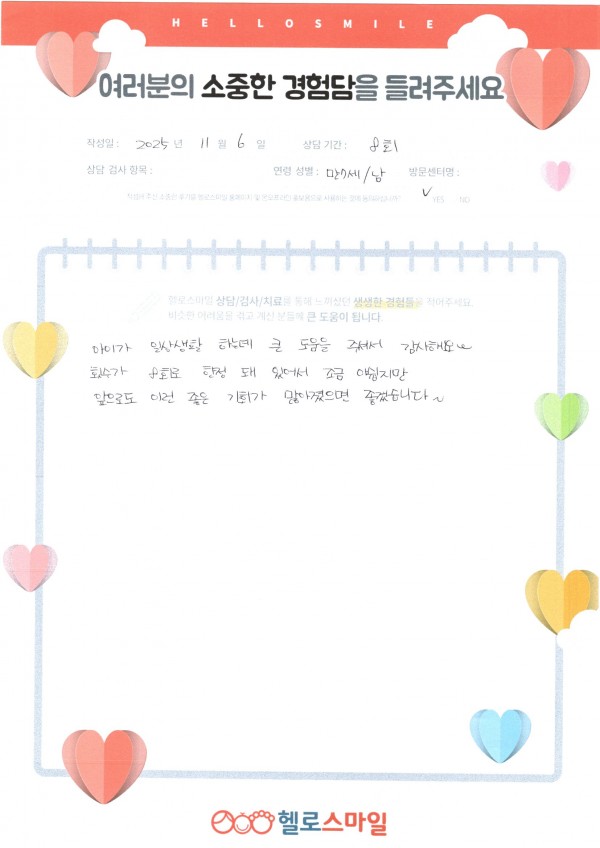 HELLOSMILE
여러분의 소중한 경험담을 들려주세요
작성일 : 2025 년 11 월 6 일 상담 기간 : 8회
상담 검사 항목 : 연령 성별 : 만7세/남 방문센터명 :
작성해 주신 소중한 후기를 헬로스마일 홈페이지 및 온오프라인 홍보용으로 사용하는 것에 동의하십니까? YES NO
헬로스마일 상담/검사/치료를 통해 느끼셨던 생생한 경험들을 적어주세요.
비슷한 어려움을 겪고 계신 분들께 큰 도움이 됩니다.
아이가 일상생활 하는데 큰 도움을 주셔서 감사해요~
회수가 8회로 한정 돼 있어서 조금 아쉽지만
앞으로도 이런 좋은 기회가 많아졌으면 좋겠습니다~
헬로스마일